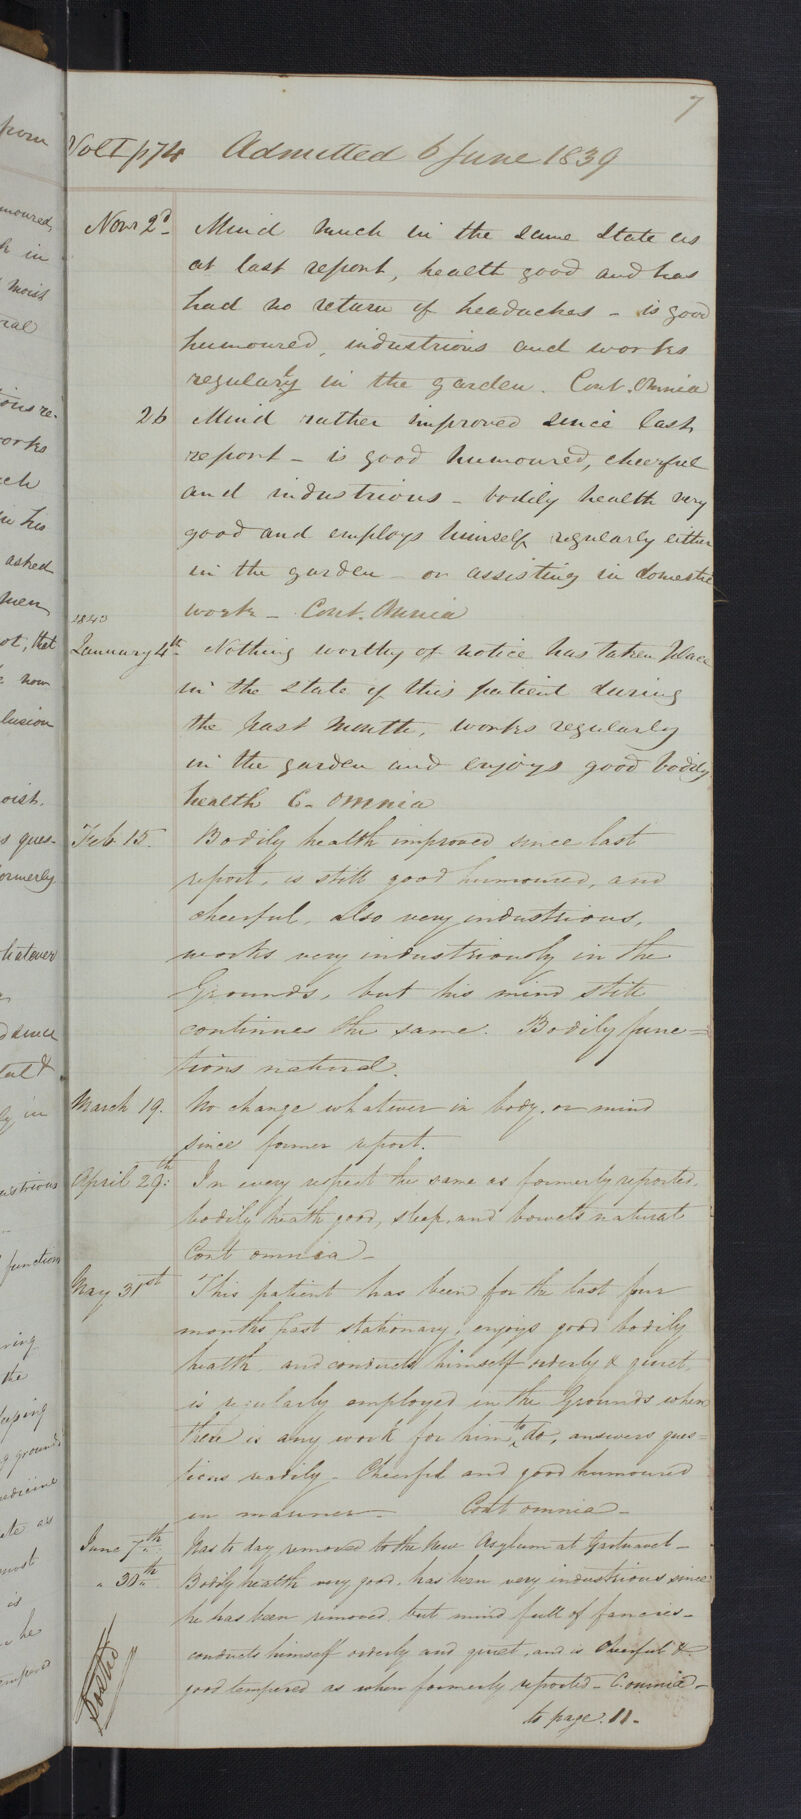 7
Vol I p 74 Admitted 6 June 1839
Novr 2d Mind much in the same state as
at last report, health good and has
had no return of headaches - is good
humoured, industrious and works
regularly in the garden. Cont. Omnia
26 Mind rather improved since last
report - is good humoured, cheerful
and industrious - bodily health very
good and employs himself regularly either
in the garden - or assisting in domestic
work - Cont. Omnia
1840
January 4th Nothing worthy of notice has taken place
in the state of this patient during
the past month, works regularly
in the garden and enjoys good bodily
health C. omnia
Feb 15. Bodily health improved since last
report, is still good humoured, and
cheerful, also very industrious,
works very industriously in the
Grounds, but his mind still
continues the same. Bodily func=
tions natural.
March 19. No change whatever in body or mind
since former report.
April 29th In every respect the same as formerly reported,
bodily heath good, sleep, and bowels natural
Cont omnia -
May 31st This patient has been for the last four
months past stationary, enjoys good bodily
heath and conducts himself orderly & quiet,
is regularly employed in the Grounds when
there is any work for him to do, answers ques=
tions readily - Cheerful and good humoured
in manner - Cont omnia -
June 7th Was to day removed to the New Asylum at Gartnavel -
" 30th Bodily health very good, has been very industrious since
he has been removed, but mind full of fancies -
conducts himself orderly and quiet, and is cheerful &
good tempered as when formerly reported - C. omnia -
to page. 11 -
Posted
from
moured,
h in
moist
ral
ious re-
works
ch
in his
asked
men
ot, that
now
lusion
oist.
s ques-
ormerly
hatever
since
ly in
ustrious
function
ring
the
eeping
ground
medicine
ate as
most
is
he
tempered